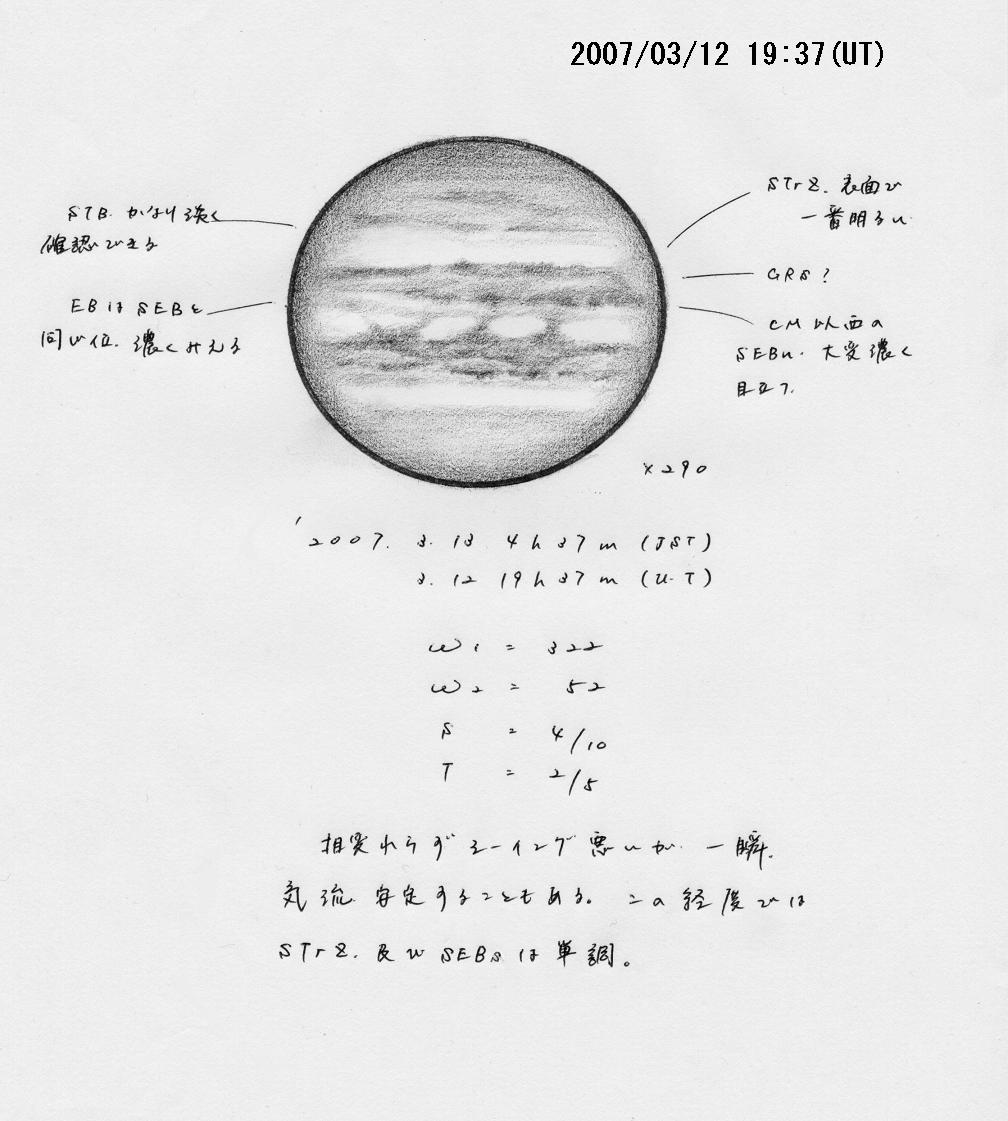 2007/03/12 19:37(UT)
STrZ. 表面で
一番明るい
STB. かなり淡く
確認できる
GRS?
EBはSEBと
同じ位. 濃くみえる
CM以西の
SEBn. 大変濃く
目立つ.
×290
'2007. 3. 13 4h37m (JST)
3. 12 19h37m (U.T)
ω1 = 322
ω2 = 52
S = 4/10
T = 2/5
相変わらずシーイング悪いが. 一瞬.
気流. 安定することもある。この経度では
STrZ. 及びSEBsは単調。